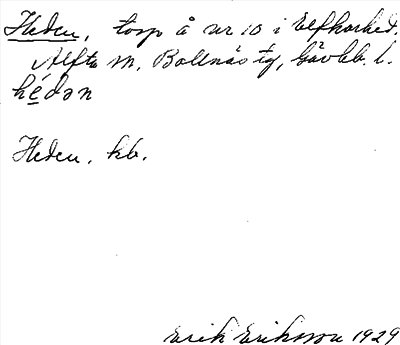 Heden, torp å nr 10 i Elfkarhed,
Alfta sn, Bollnäs tg, Gävleb. l.
hédən
Heden, kb.
Erik Eriksson 1929